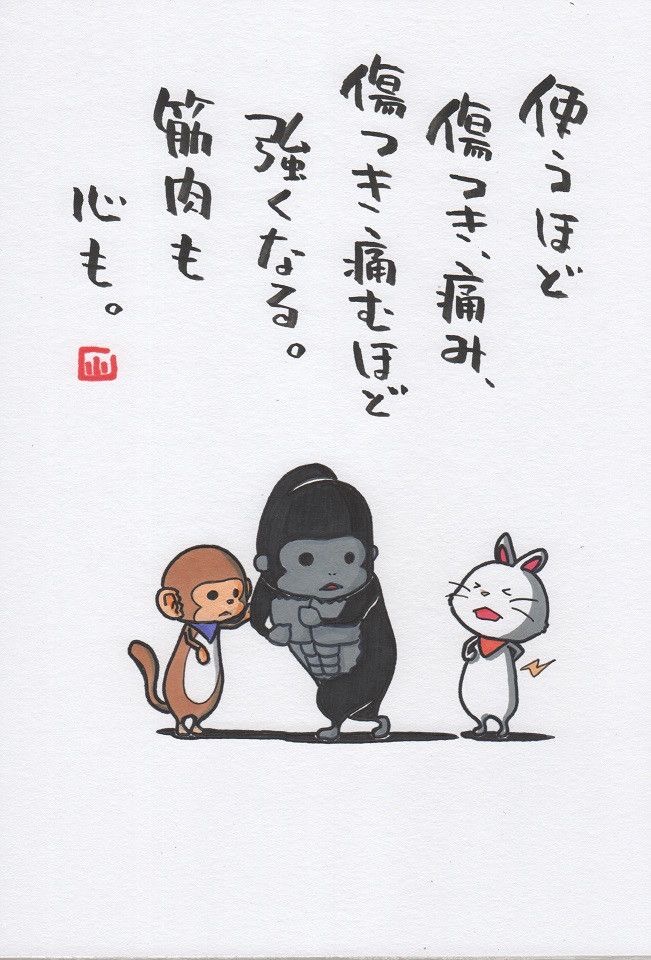 使うほど
傷つき、痛み、
傷つき痛むほど
強くなる。
筋肉も
心も。